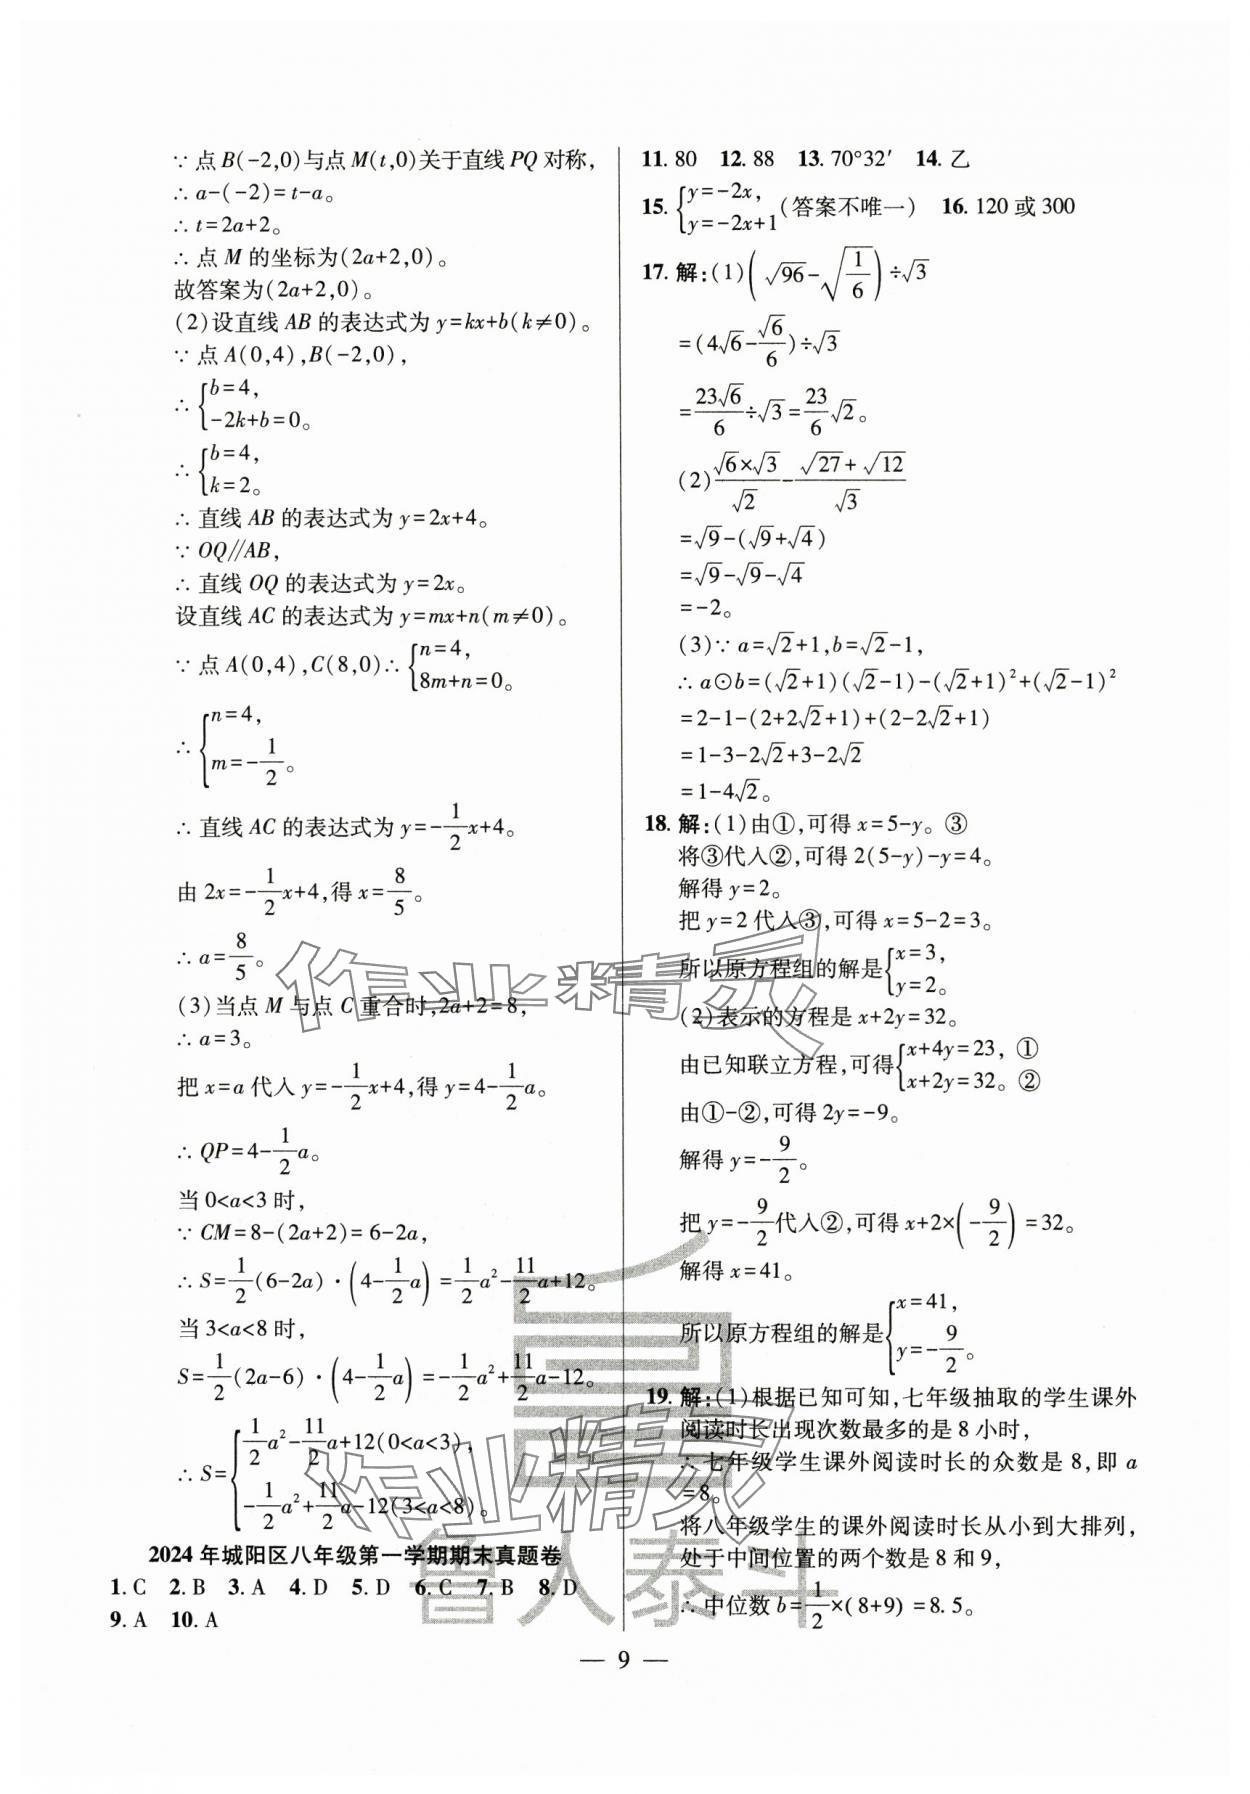 ∵点B(-2,0)与点M(t,0)关于直线PQ对称，
∴a-(-2)=t-a。
∴t=2a+2。
∴点M的坐标为(2a+2,0)。
故答案为(2a+2,0)。
(2)设直线AB的表达式为y=kx+b(k≠0)。
∵点A(0,4),B(-2,0),
∴{b=4,
-2k+b=0。
∴{b=4,
k=2。
∴直线AB的表达式为y=2x+4。
∵OQ//AB,
∴直线OQ的表达式为y=2x。
设直线AC的表达式为y=mx+n(m≠0)。
∵点A(0,4),C(8,0)∴{n=4,
8m+n=0。
∴{n=4,
m=-1/2。
∴直线AC的表达式为y=-1/2x+4。
由2x=-1/2x+4,得x=8/5。
∴a=8/5。
(3)当点M与点C重合时,2a+2=8,
∴a=3。
把x=a代入y=-1/2x+4,得y=4-1/2a。
∴QP=4-1/2a。
当0<a<3时,
∵CM=8-(2a+2)=6-2a,
∴S=1/2(6-2a)·(4-1/2a)=1/2a²-11/2a+12。
当3<a<8时,
S=1/2(2a-6)·(4-1/2a)=-1/2a²+11/2a-12。
∴S={1/2a²-11/2a+12(0<a<3),
-1/2a²+11/2a-12(3<a<8)。
2024年城阳区八年级第一学期期末真题卷
1. C 2. B 3. A 4. D 5. D 6. C 7. B 8. D
9. A 10. A
11. 80 12. 88 13. 70°32′ 14. 乙
15. {y=-2x,
y=-2x+1(答案不唯一) 16. 120或300
17. 解:(1)(√96-√(1/6))÷√3
=(4√6-√6/6)÷√3
=23√6/6÷√3=23/6√2。
(2)√6×√3/√2-(√27+√12)/√3
=√9-(√9+√4)
=√9-√9-√4
=-2。
(3)∵a=√2+1,b=√2-1,
∴a⊙b=(√2+1)(√2-1)-(√2+1)²+(√2-1)²
=2-1-(2+2√2+1)+(2-2√2+1)
=1-3-2√2+3-2√2
=1-4√2。
18. 解:(1)由①,可得x=5-y。③
将③代入②,可得2(5-y)-y=4。
解得y=2。
把y=2代入③,可得x=5-2=3。
所以原方程组的解是{x=3,
y=2。
(2)表示的方程是x+2y=32。
由已知联立方程,可得{x+4y=23, ①
x+2y=32。②
由①-②,可得2y=-9。
解得y=-9/2。
把y=-9/2代入②,可得x+2×(-9/2)=32。
解得x=41。
所以原方程组的解是{x=41,
y=-9/2。
19. 解:(1)根据已知可知,七年级抽取的学生课外
阅读时长出现次数最多的是8小时,
∴七年级学生课外阅读时长的众数是8,即a
=8。
将八年级学生的课外阅读时长从小到大排列,
处于中间位置的两个数是8和9,
∴中位数b=1/2×(8+9)=8.5。
— 9 —
作业精灵
作业精灵
鲁人泰斗